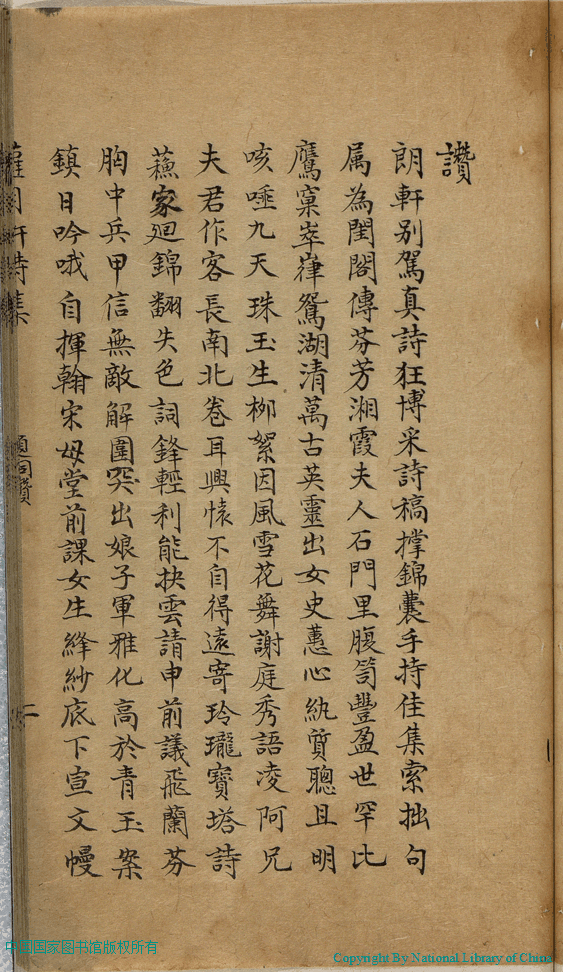 讚
朗軒別駕真詩狂博采詩稿撑錦囊手持佳集索拙句
属為閨閣傳芬芳湘霞夫人石門里腹笥豐盈世罕比
鷹窠崒嵂鴛湖清萬古英靈出女史蕙心紈質聰且明
咳唾九天珠玉生柳絮因風雪花舞謝庭秀語凌阿兄
夫君作客長南北巻耳興懐不自得遠寄玲瓏寶塔詩
蘓家廻錦翻失色詞鋒輕利能抉雲請申前議飛蘭芬
胸中兵甲信無敵解圍突出娘子軍雅化高於青玉案
鎮日吟哦自揮翰宋母堂前課女生絳紗底下宣文幔
軒詩集
題詞讚
二
中国国家图书馆版权所有
Copyright By National Library of China